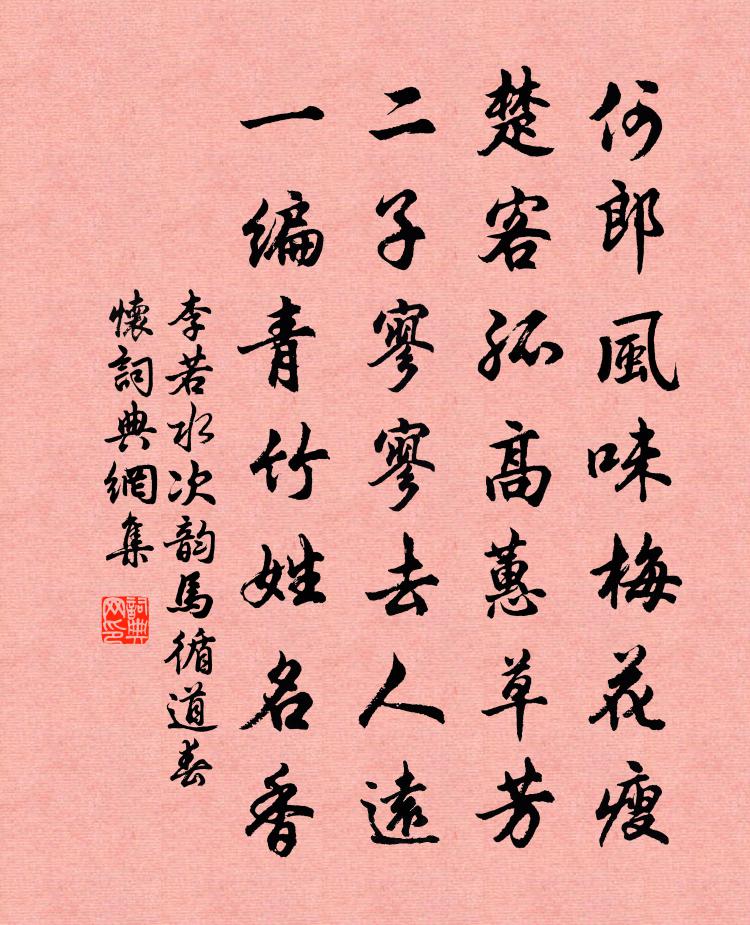 何郎風味梅花瘦
楚客孤高蕙草芳
二子寥寥去人遠
一编青竹姓名香
李若水次韵馬循道春
懷詞典網集
詞典网印